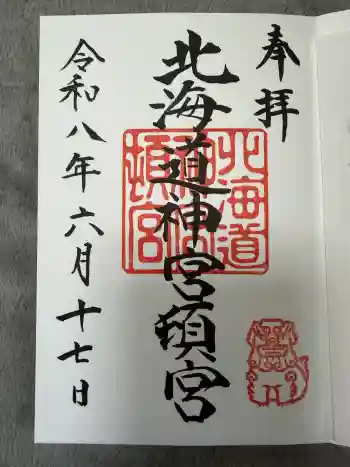 奉拝
北海道神宮頓宮
北海道
神宮
頓宮
令和八年六月十七日